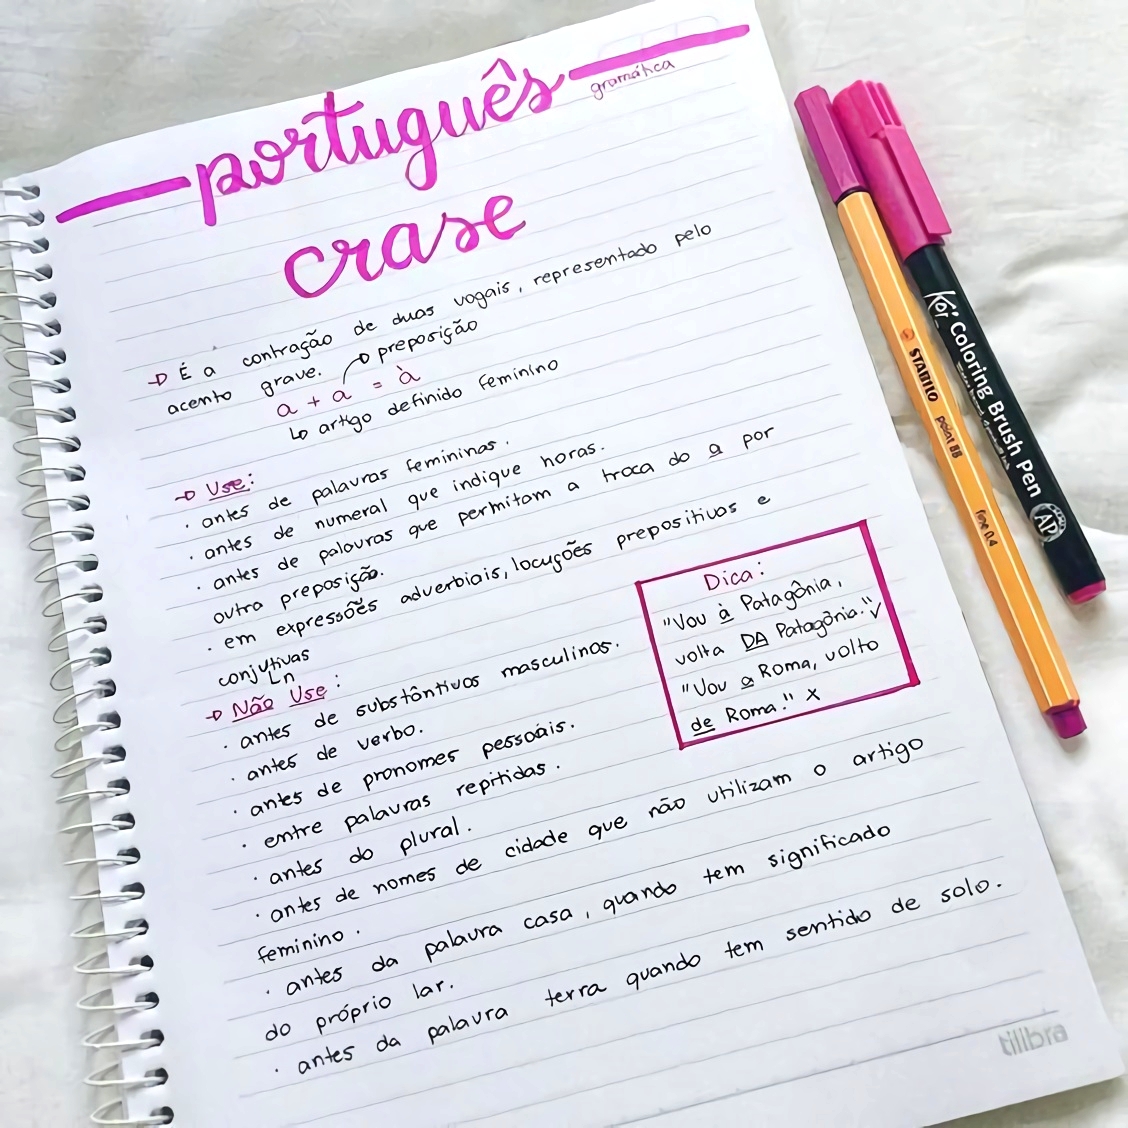 português
gramática
crase
→ É a contração de duas vogais, representado pelo
acento grave.
preposição
a + a = à
↳ artigo definido feminino
→ Use:
· antes de palavras femininas.
· antes de numeral que indique horas.
· antes de palavras que permitam a troca do a por
outra preposição.
· em expressões adverbiais, locuções prepositivas e
conjutivas
n
Dica:
"Vou à Patagônia,
volta DA Patagônia." ✓
"Vou a Roma, volto
de Roma." x
→ Não Use:
· antes de substântivos masculinos.
· antes de verbo.
· antes de pronomes pessoais.
· entre palavras repitidas.
· antes do plural.
· antes de nomes de cidade que não utilizam o artigo
feminino.
· antes da palavra casa, quando tem significado
do próprio lar.
· antes da palavra terra quando tem sentido de solo.
tilibra
STABILO point 88 fine 0.4
Koi Coloring Brush Pen AP